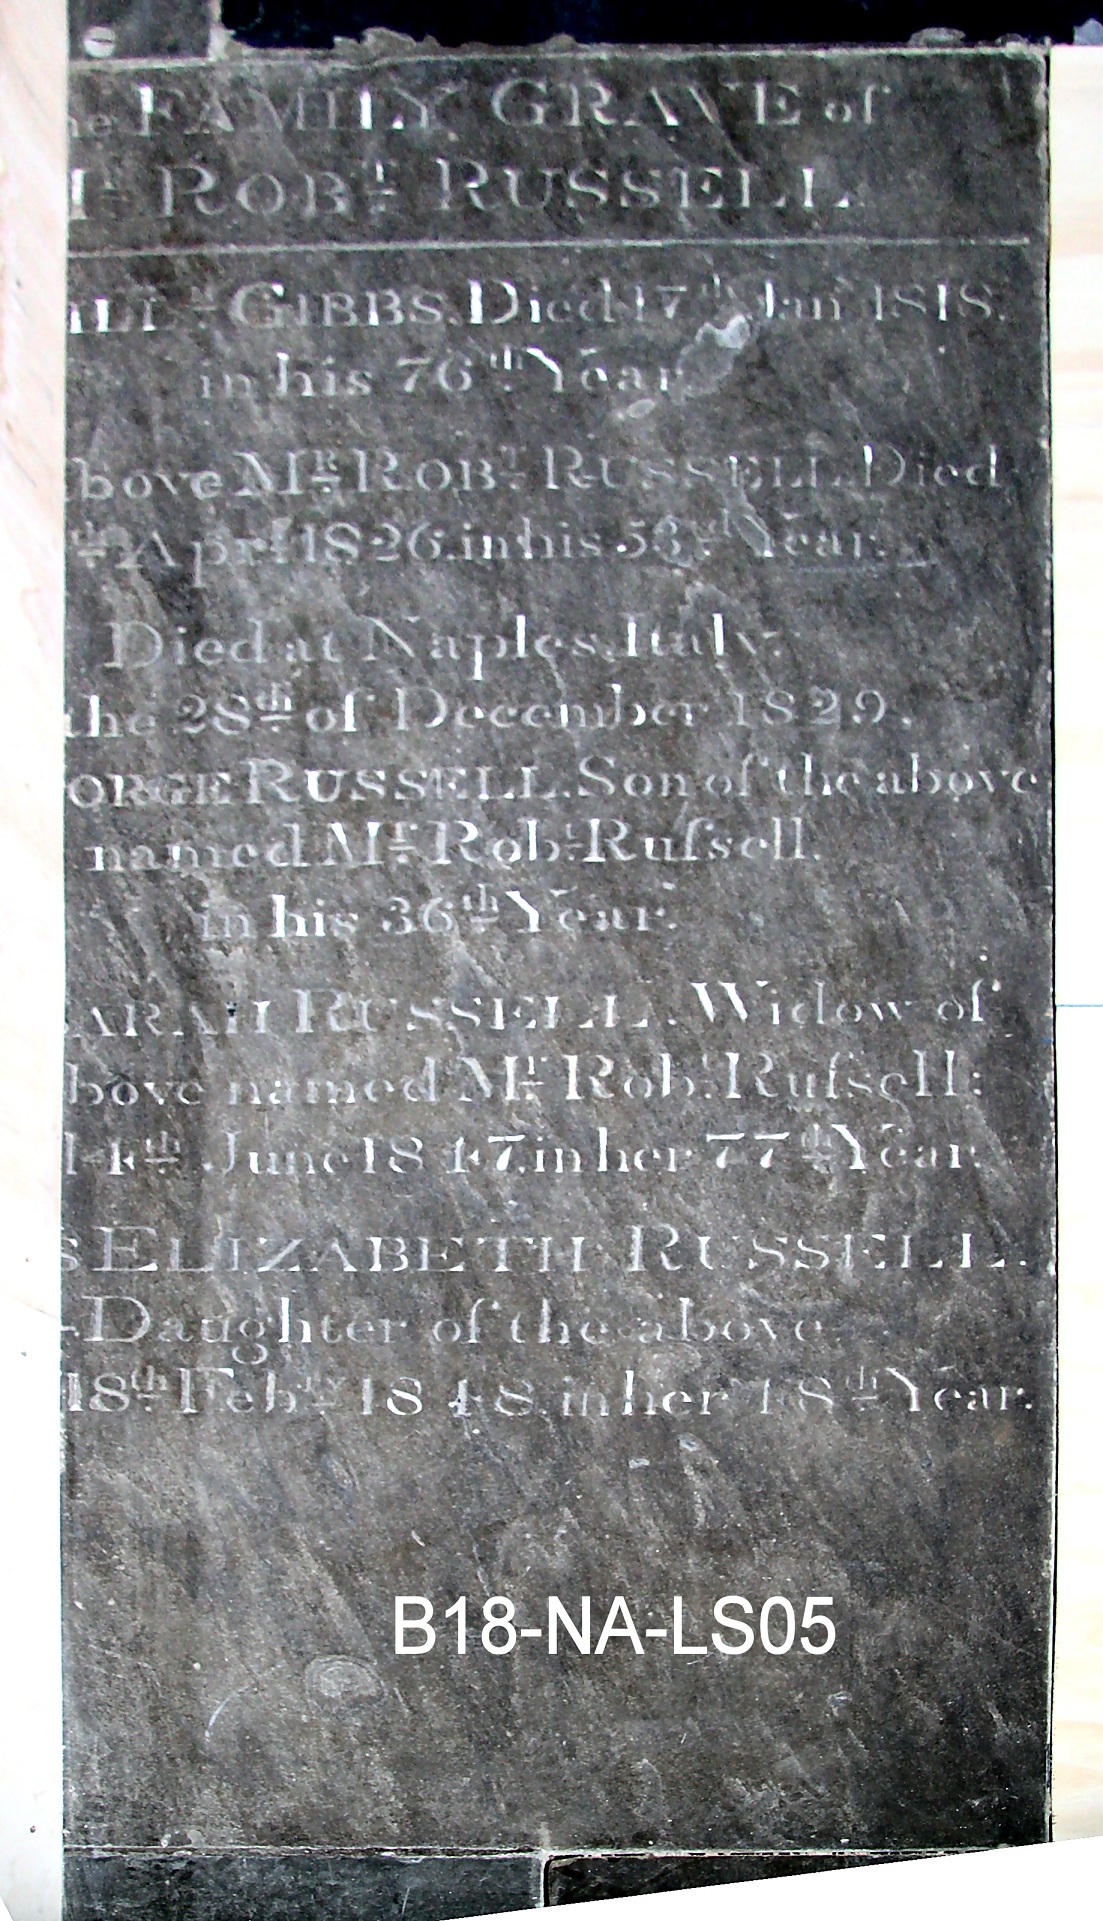 he FAMILY GRAVE of
Mr. ROBT. RUSSELL.
ILLM. GIBBS. Died 17th Jany 1818.
in his 76th Year
bove MR. ROBT. RUSSELL. Died
th Aprl. 1826. in his 53rd Year.
Died at Naples, Italy.
the 28th of December 1829.
ORGE RUSSELL. Son of the above
named Mr. Robt. Ruſsell.
in his 36th Year.
ARAH RUSSELL. Widow of
bove named Mr. Robt. Ruſsell:
14th June 1847. in her 77th Year.
S ELIZABETH RUSSELL.
Daughter of the above
18th Feby. 1848. in her 48th Year.
B18-NA-LS05